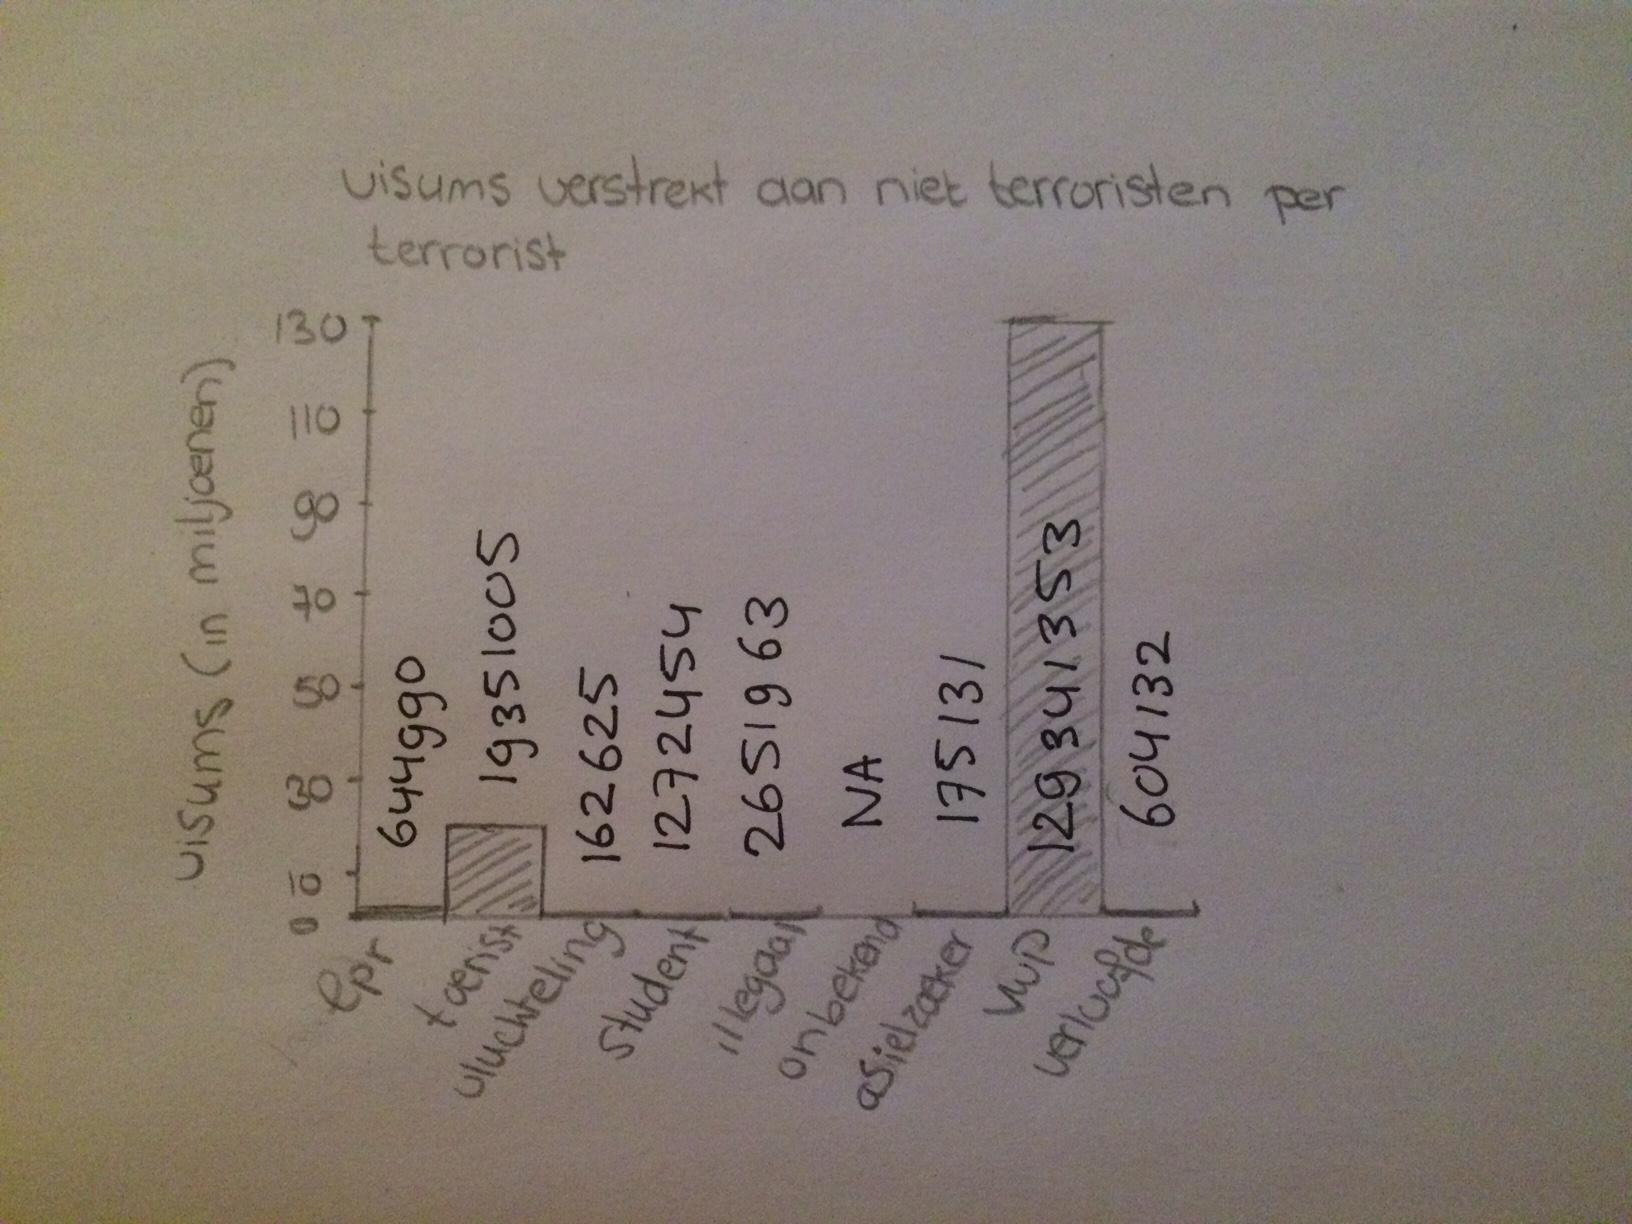 visums verstrekt aan niet terroristen per
terrorist
visums (in miljoenen)
130
110
90
70
50
30
10
0
644990
19351005
162625
1272454
2651963
NA
175131
129341353
604132
lpr
toerist
vluchteling
student
illegaal
onbekend
asielzoeker
vwp
verloofde